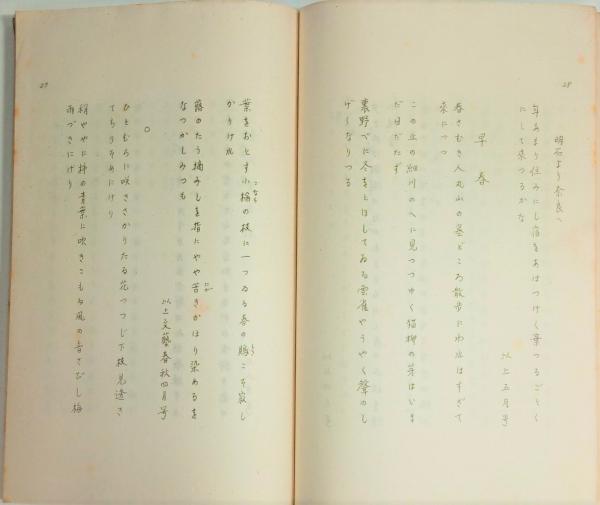 28
明石より奈良へ
年あまり住みにし宿をあはつけく棄つるごとく
にして来つるかな
以上五月号
早春
春さむき人丸山の墓どころ散歩にわれはすぎて
来につつ
この丘の細川のへに見つつゆく猫柳の芽はいま
だ目だたず
裏野べに冬をとほしてゐる雲雀やうやく聲のし
げくなりつる
27
葉をおとす小楢の枝に一つゐる春の鵙こそ寂し
こなら
もず
かりけれ
蕗のたう摘みしを指にやや苦きかほり染めるを
にが
なつかしみつも
以上文藝春秋四月号
○
ひともとに咲きさかりたる花つつじ下枝見透き
てちりそめにけり
梢ややに柿の青葉に吹きこもる風の音さびし梅
雨づきにけり